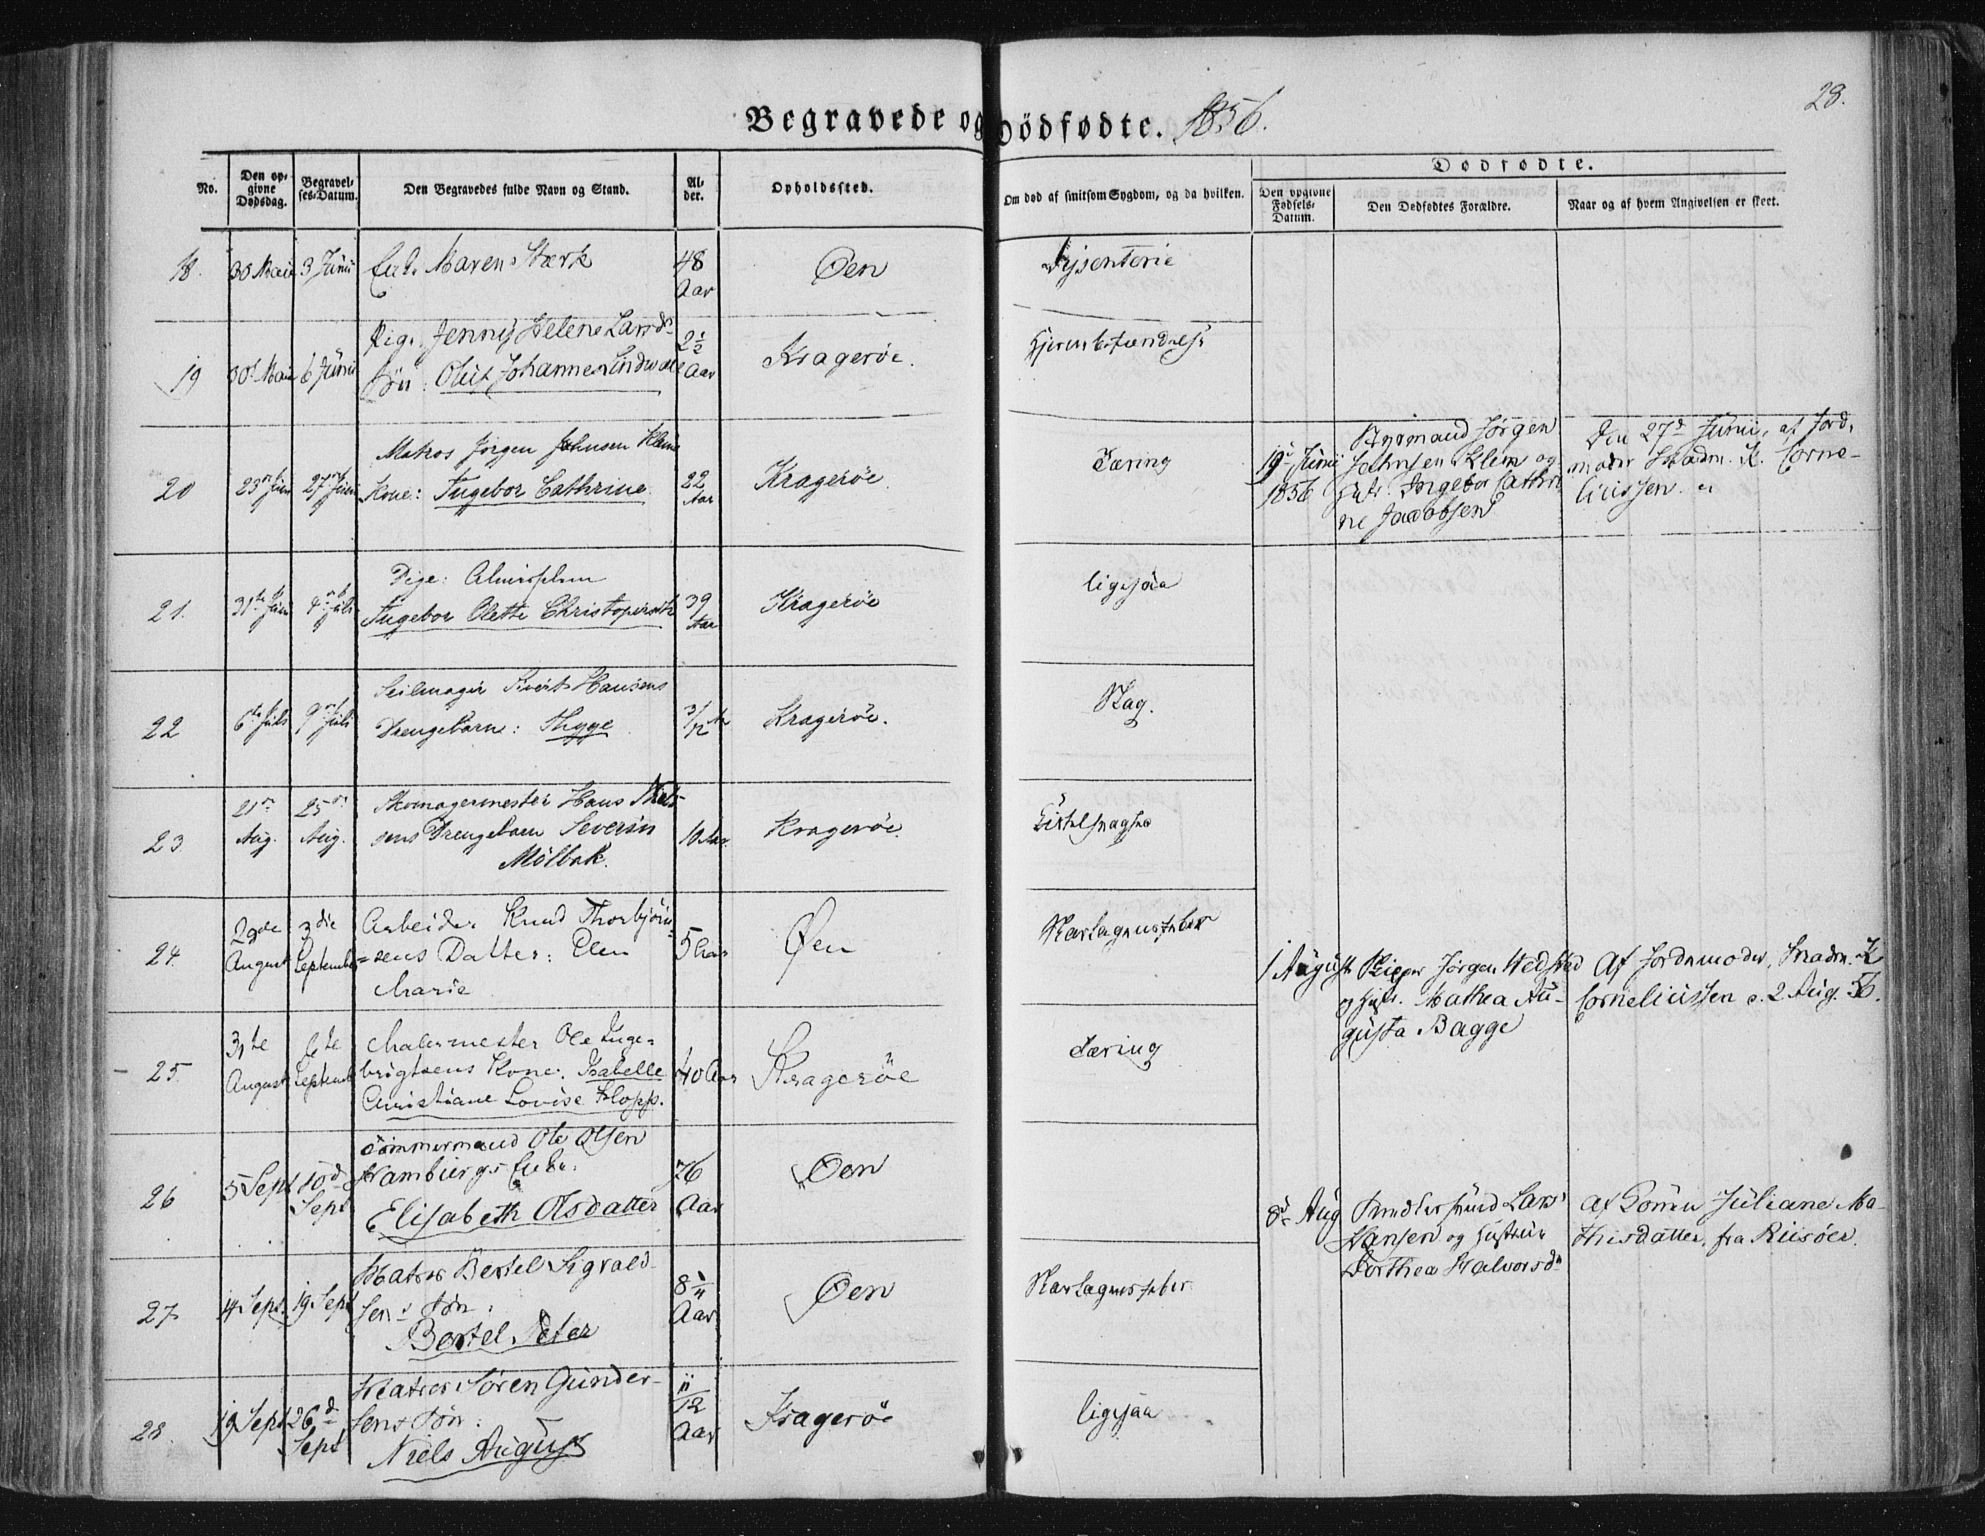 Begravede og Dödfødte. 1856.
28.
No.
Den opgivne Dødsdag.
Begravelses-Datum.
Den Begravedes fulde Navn og Stand.
Alder.
Opholdssted.
Om død af smitsom Sygdom, og da hvilken.
Dødfødte.
Den opgivne Fødsels-Datum.
Den Dødfødtes Forældre.
Naar og af hvem Angivelsen er skeet.
18. 30 Maii 3 Junii Enke Maren Stærk 48 Aar Øen Dysenterie
19 30 Maii 6 Junii Pige Jenny Helene
Søn: Oluf Johannes Lindvall 2½ Aar Kragerøe
20 23 Juni 27 Juni Matros Jørgen Johnsen Klein
Kone: Ingebor Cathrine 22 Aar Kragerøe. Tæring
19 Junii 1856
Styrmand Jørgen
Johnsen Klein og
Hustr. Ingebor Cathri
ne Jacobsen
Den 27d Junii, af Jord-
moder Madm. K. Corne-
liussen
21. 30te Juni 4 Juli Pige:
Ingebor Olette 39 Aar Kragerøe ligesaa
22 6te Juli 9 Juli Seilmager Hansens
Drengebarn: Thyge 3/12 Kragerøe.
23 21 Aug. 25 Aug. Skomagermester Hans Niel-
sens Drengebarn Severin
Mölbak. 10 Aar Kragerøe.
24 29de August 3die September Arbeider Knud Thorbjörn-
=sens Datter: Elen
Marie 5 Aar Øen Skarlagensfeber
1 August Skipper Jørgen Wedsted
og Hustr. Mathea Au-
gusta Bagge
Af Jordemoder, Madm. K
Corneliussen d. 2 Aug. 56.
25 31te August 6te September Malermester Ole Inge-
brigtsens Kone. Isabelle
Christiane Lovise Klopp. 40 Aar Kragerøe Tæring
26 5 Sept 10d Sept Tömmermand Ole Olsen
Hamburgs Enke.
Elisabeth Olsdatter 76 Aar Øen
8d Aug Lars
Hansen og Hustrue
Dorthea Halvorsdr
Af Konen Juliane Ma-
thisdatter, fra Riisøer.
27 14 Sept. 19 Sept Matros Bertel Sigvald-
sens Søn.
Bertel Peter 8 Aar Øen Skarlagensfeber
28. 19 Sept 26d Sept Matros Søren Gunder-
sens Søn.
Niels August 11/12 Aar Kragerøe ligesaa